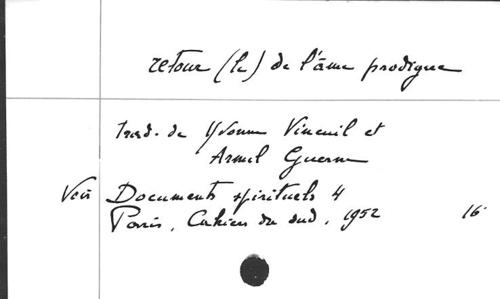 retour (le) de l'âme prodigue
trad. de Yvonne Vineuil et
Armel Guerne
Voir Documents spirituels 4
Paris, Cahiers du sud, 1952 16